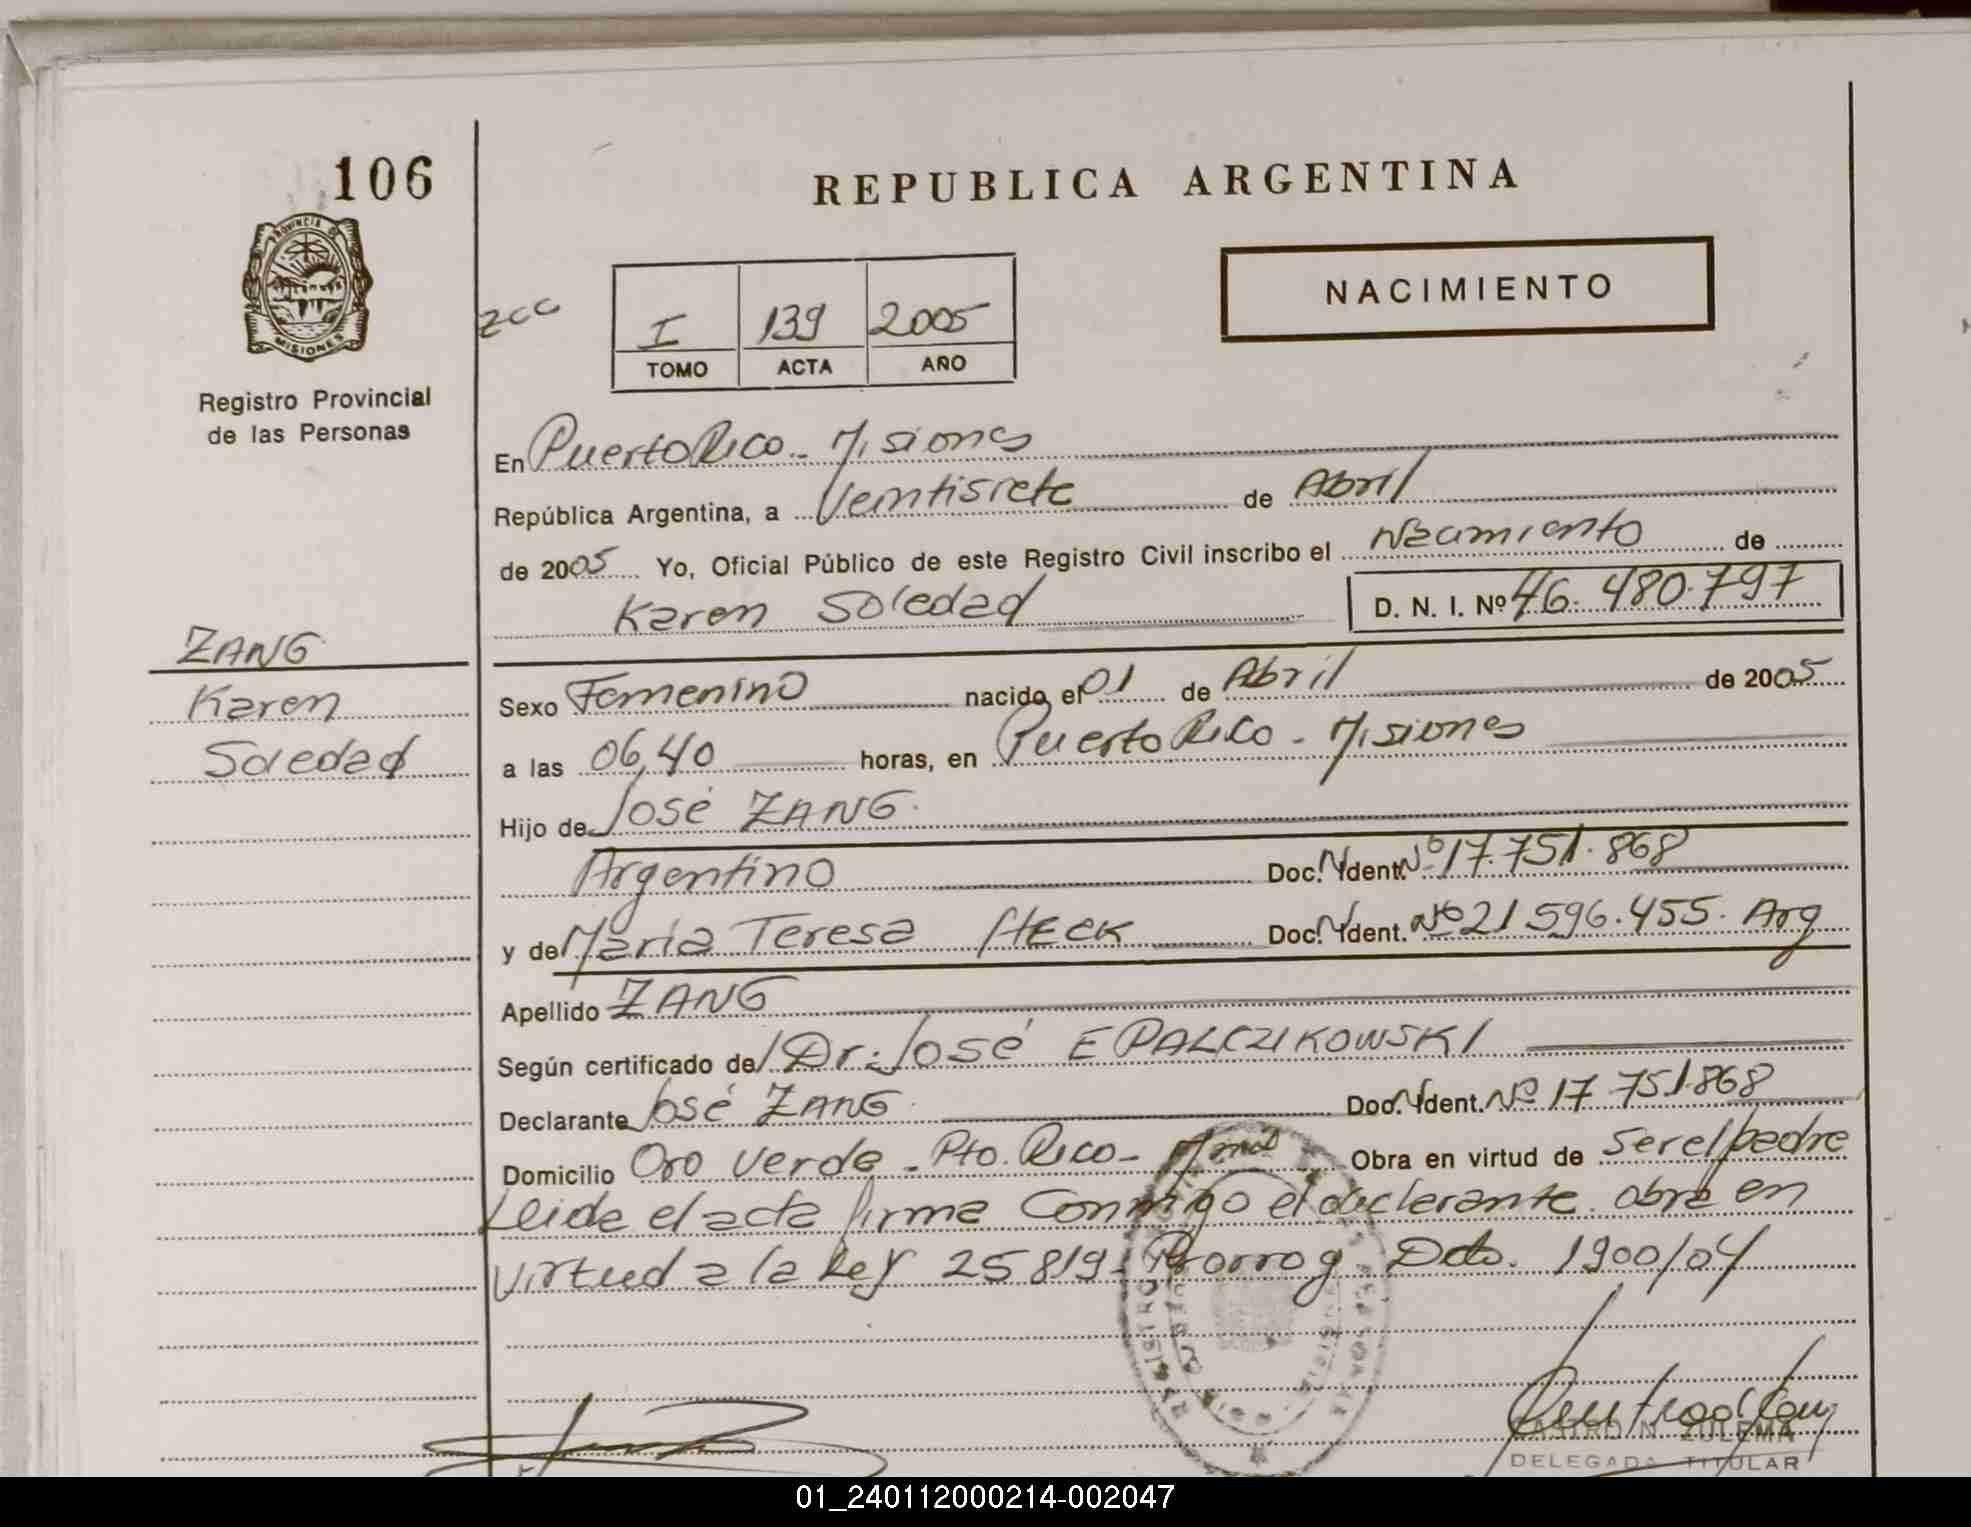 106
REPUBLICA ARGENTINA
NACIMIENTO
PROVINCIA DE
MISIONES
Registro Provincial
de las Personas
I 139 2005
TOMO ACTA AÑO
En Puerto Rico - Misiones
República Argentina, a Veintisiete de Abril
de 2005 Yo, Oficial Público de este Registro Civil inscribo el Nacimiento de
Karen Soledad D. N. I. Nº 46.480.797
ZANG
Karen
Soledad
Sexo Femenino nacido el 01 de Abril de 2005
a las 06,40 horas, en Puerto Rico - Misiones
Hijo de José ZANG
Argentino Doc. N Ident. Nº 17.751.868
y de María Teresa HECK Doc. N Ident. Nº 21.596.455. Arg
Apellido ZANG
Según certificado de Dr. José E PALCZIKOWSKI
Declarante José ZANG Doc. N Ident. Nº 17 751.868
Domicilio Oro Verde - Pto. Rico - Obra en virtud de ser el padre
Leida el acta firma Conmigo el declarante. obra en
virtud a la Ley 25819 - Prorrog Dcto. 1900/04
CASTRO N. ZULEMA
DELEGADA TITULAR
01_240112000214-002047